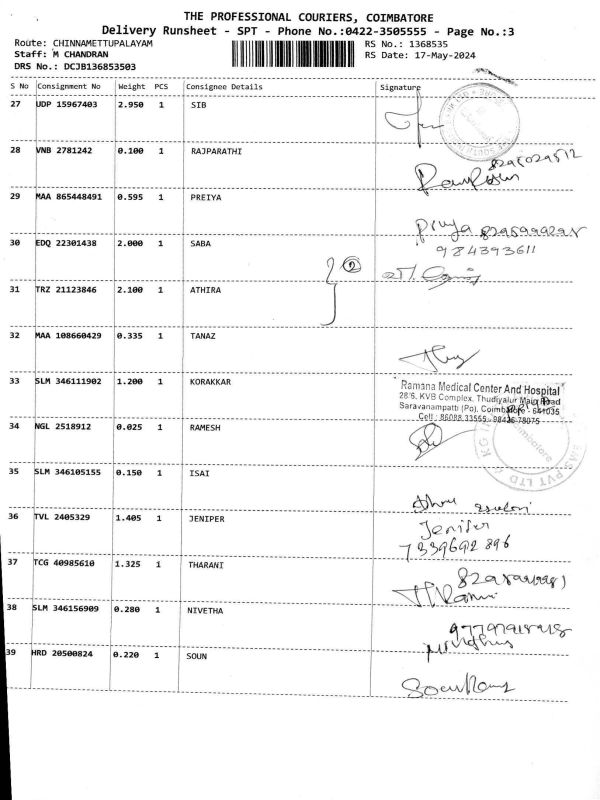 THE PROFESSIONAL COURIERS, COIMBATORE
Delivery Runsheet - SPT - Phone No.:0422-3505555 - Page No.:3
Route: CHINNAMETTUPALAYAM RS No.: 1368535
Staff: M CHANDRAN RS Date: 17-May-2024
DRS No.: DCJB136853503
S No Consignment No Weight PCS Consignee Details Signature
27 UDP 15967403 2.950 1 SIB
28 VNB 2781242 0.100 1 RAJPARATHI
29 MAA 865448491 0.595 1 PREIYA
Priya
30 EDQ 22301438 2.000 1 SABA 984393611
2
31 TRZ 21123846 2.100 1 ATHIRA
32 MAA 108660429 0.335 1 TANAZ
33 SLM 346111902 1.200 1 KORAKKAR
Ramana Medical Center And Hospital
28/5, KVB Complex, Thudiyalur Main Road
Saravanampatti (Po), Coimbatore - 641035
Cell : 86088 33555, 98426 78075
34 NGL 2518912 0.025 1 RAMESH
Coimbatore
PVT LTD
35 SLM 346105155 0.150 1 ISAI
36 TVL 2405329 1.405 1 JENIPER
Jenifer
7339692896
37 TCG 40985610 1.325 1 THARANI
38 SLM 346156909 0.280 1 NIVETHA
39 HRD 20500824 0.220 1 SOUN